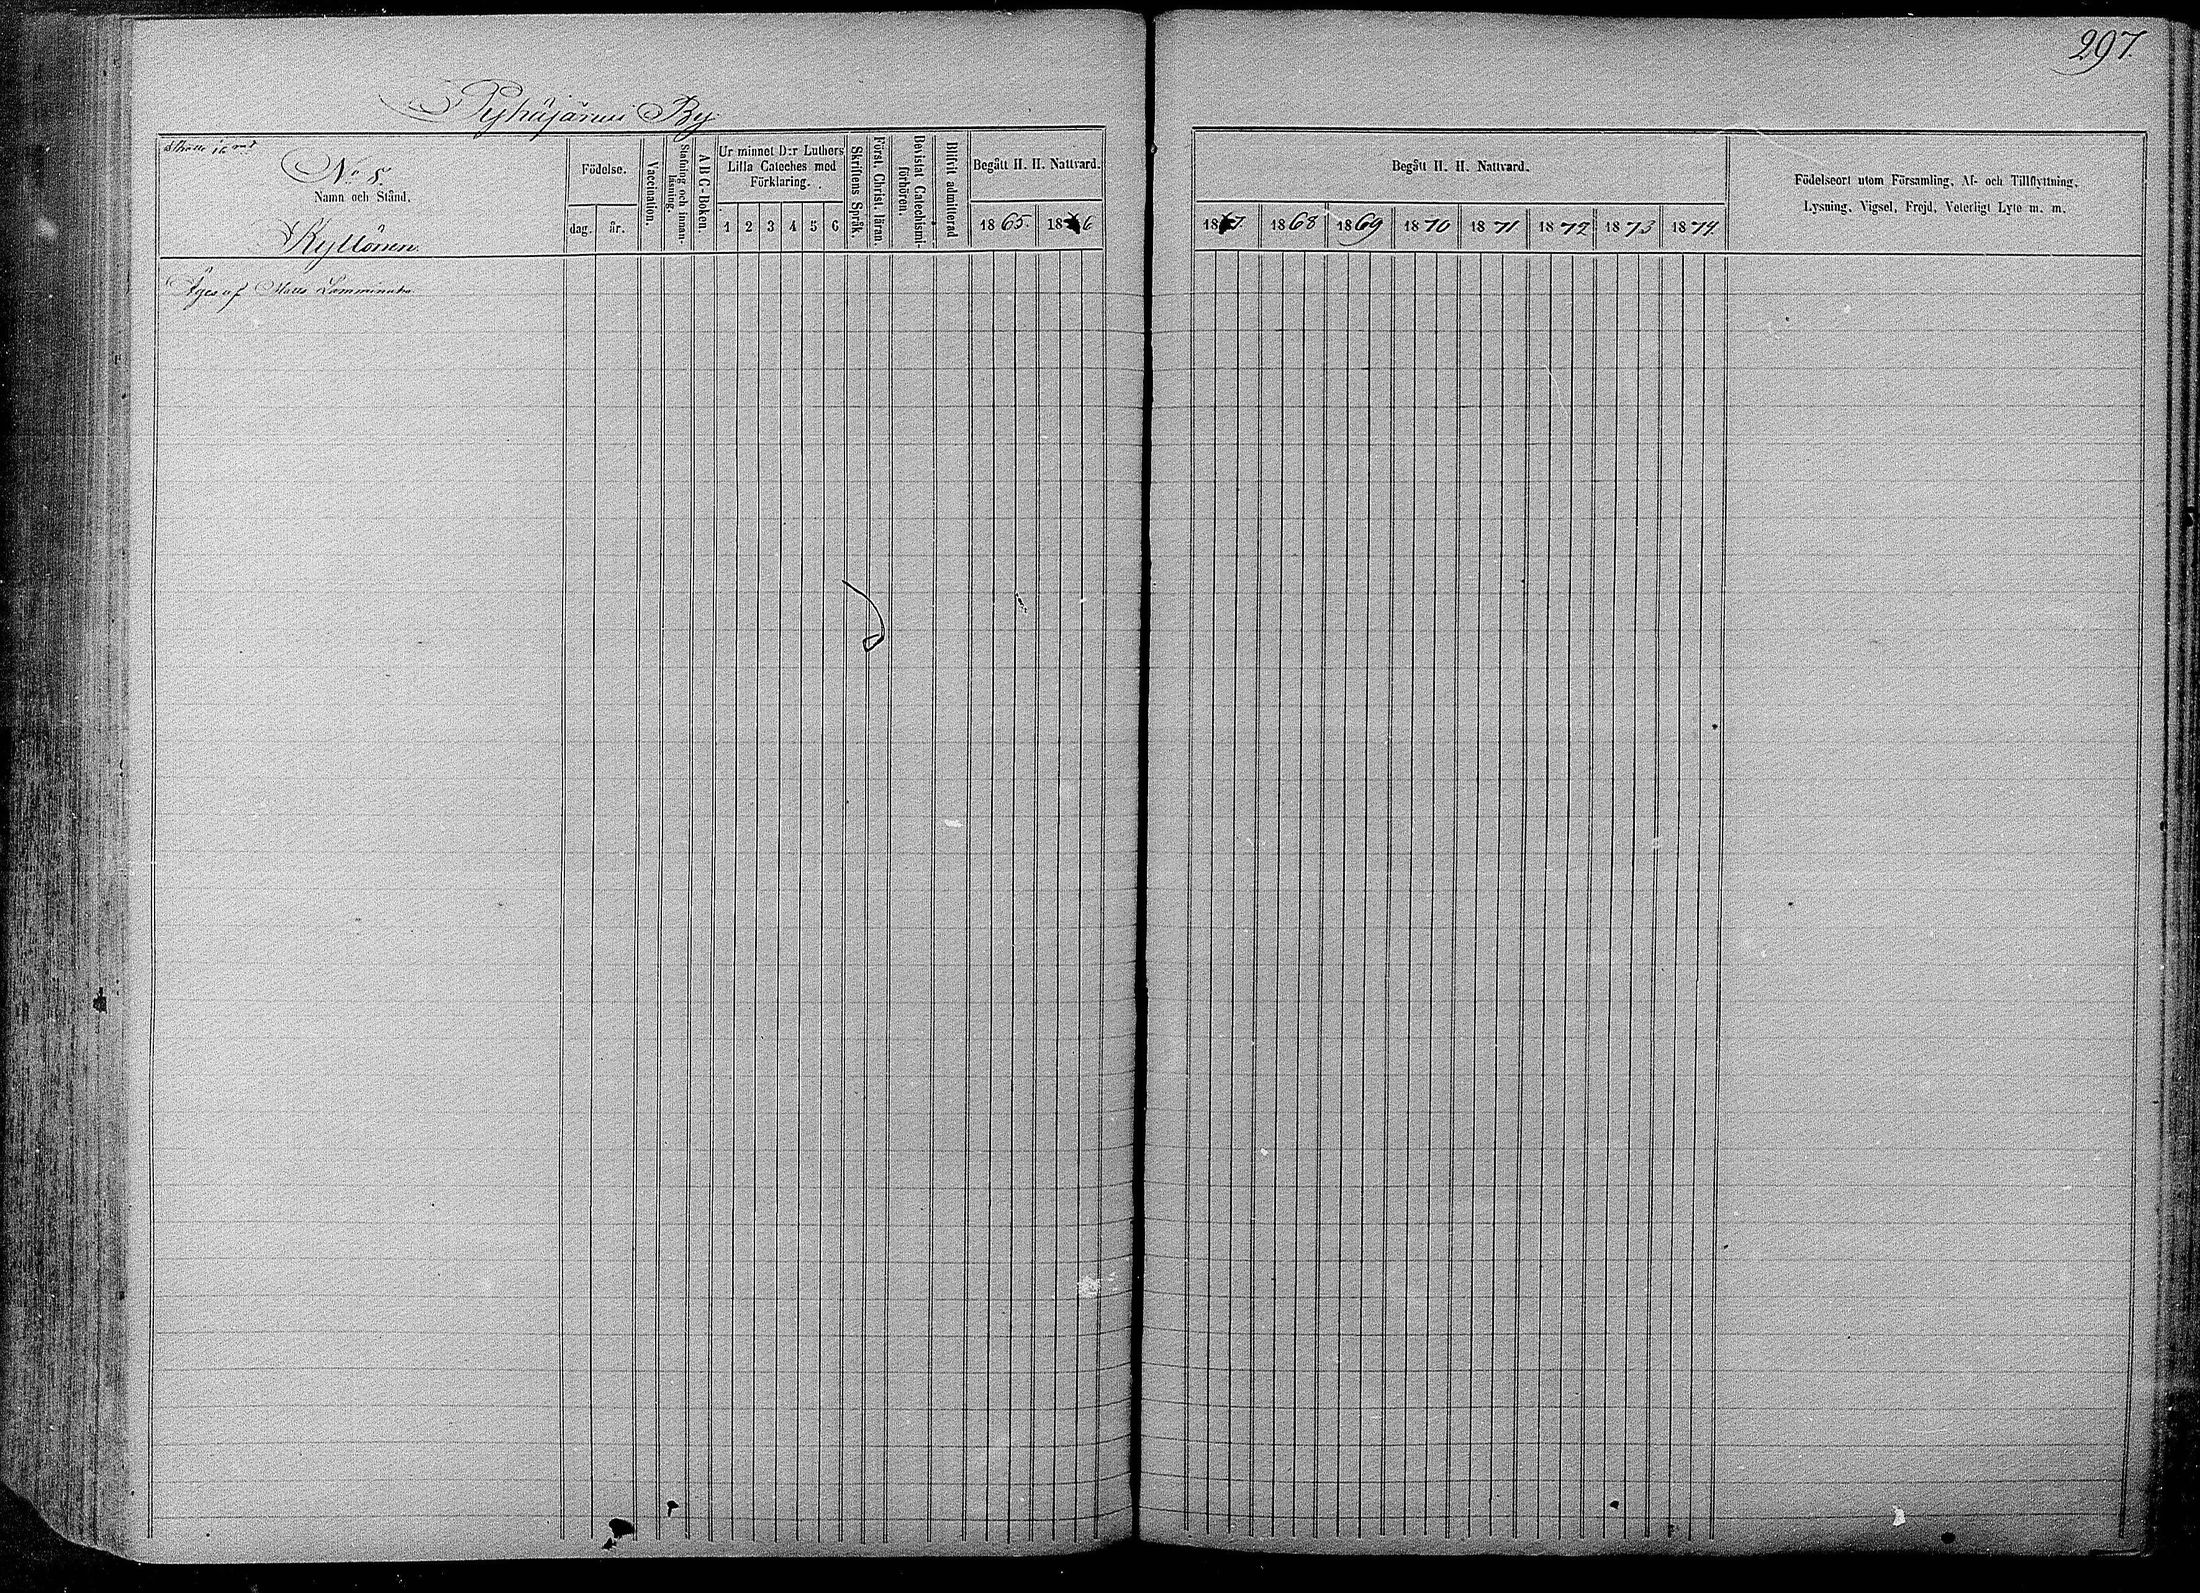 297.
Pyhäjärvi By
N:o 8
Namn och Stånd.
Kyllönen.
Födelse.
dag. år.
Vaccination.
Stafning och innan-
läsning.
A B C-Boken.
Ur minnet D:r Luthers
Lilla Cateches med
Förklaring.
1 2 3 4 5 6
Skriftens Språk.
Först. Christ. läran.
Bevistat Catechismi-
förhören.
Blifvit admitterad
Begått H. H. Nattvard.
1865. 186
Äges af Matts
Begått H. H. Nattvard.
1867. 1868 1869 1870 1871 1872 1873 1874.
Födelseort utom Församling, Af- och Tillflyttning,
Lysning, Vigsel, Frejd, Veterligt Lyte m. m.